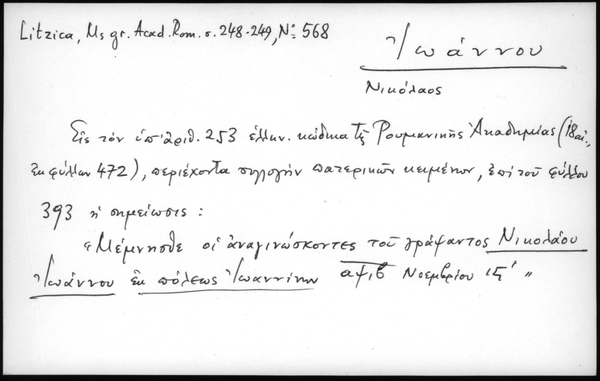 Litzica, Ms gr. Acad. Rom. σ. 248-249, Nº 568
Ἰωάννου
Νικόλαος
Εἰς τὸν ὑπ' ἀριθ. 253 ἑλλην. κώδικα τῆς Ρουμανικῆς Ἀκαδημίας (18 αἰ.,
ἐκ φύλλων 472), περιέχοντα συλλογὴν πατερικῶν κειμένων, ἐπὶ τοῦ φύλλου
393 ἡ σημείωσις :
"Μέμνησθε οἱ ἀναγινώσκοντες τοῦ γράψαντος Νικολάου
Ἰωάννου ἐκ πόλεως Ἰωαννίνων αψιβ Νοεμβρίου ιϛ' "